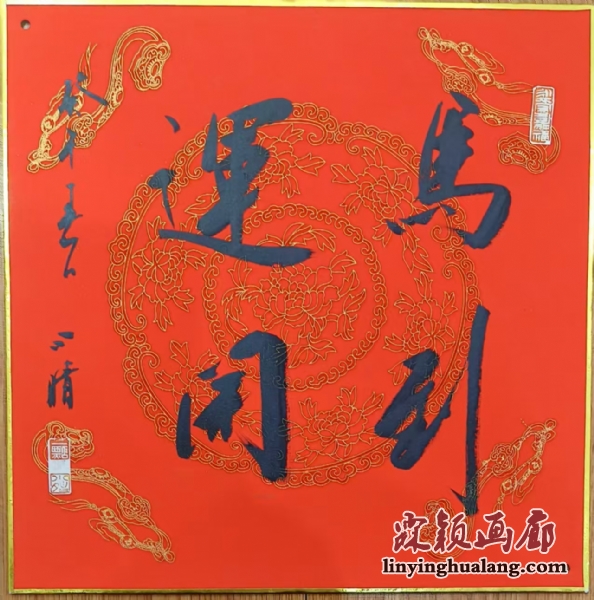 馬到
運開
春日
晴
琳颖画廊
linyinghualang.com